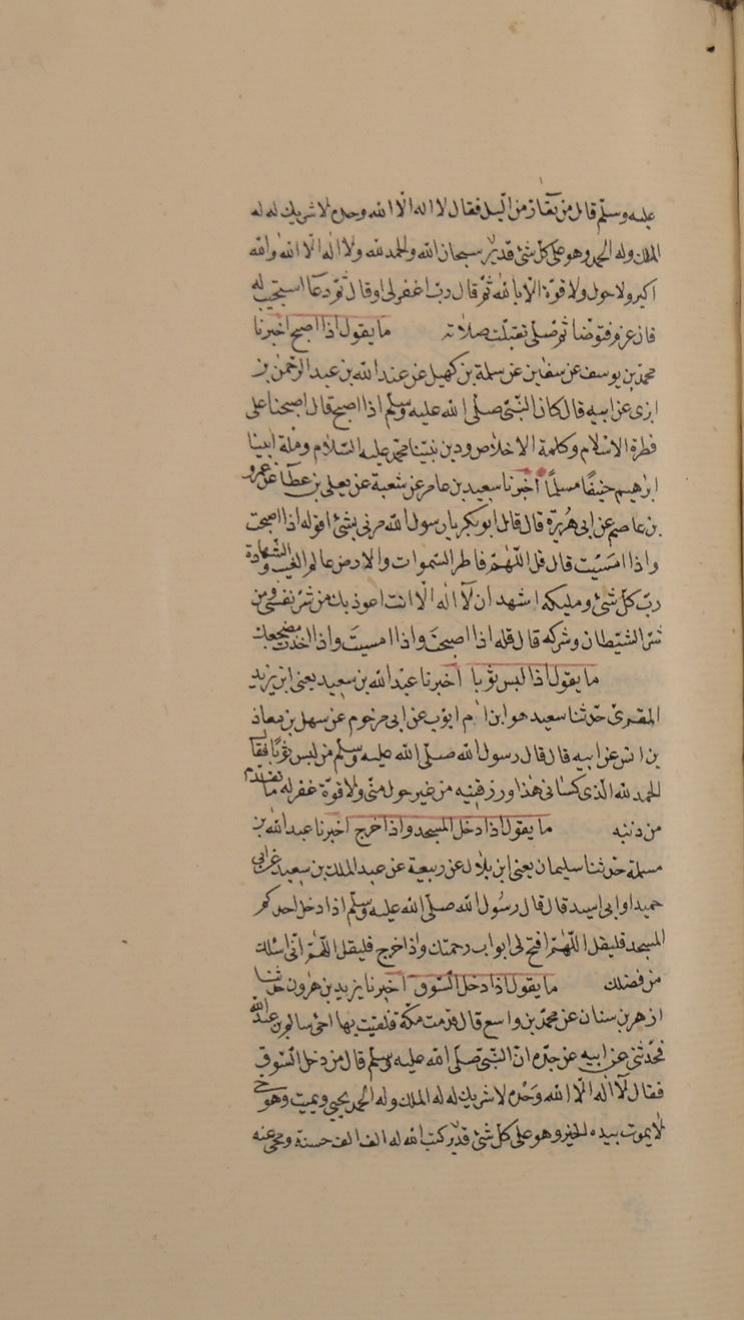 عليه وسلم قال من تعار من الليل فقال لا اله الا الله وحده لا شريك له له
الملك وله الحمد وهو على كل شئ قدير سبحان الله والحمد لله ولا اله الا الله والله
اكبر ولا حول ولا قوة الا بالله ثم قال رب اغفر لى او قال ثم دعا استجيب له
فان عزم فتوضا ثم صلى تقبلت صلاته ما يقول اذا اصبح اخبرنا
محمد بن يوسف عن سفين عن سلمة بن كهيل عن عبد الله بن عبد الرحمن بن
ابزى عن ابيه قال كان النبى صلى الله عليه وسلم اذا اصبح قال اصبحنا على
فطرة الاسلام وكلمة الاخلاص ودين نبينا محمد عليه السلام وملة ابينا
ابرهيم حنيفا مسلما اخبرنا سعيد بن عامر عن شعبة عن يعلى بن عطآء عن عمرو
بن عاصم عن ابى هريرة قال قال ابو بكر يا رسول الله مرنى بشئ اقوله اذا اصبحت
واذا امسيت قال قل اللهم فاطر السموات والارض عالم الغيب والشهادة
رب كل شئ ومليكه اشهد ان لآ اله الا انت اعوذ بك من شر نفسى ومن
شر الشيطان وشركه قال قله اذا اصبحت واذا امسيت واذا اخذت مضجعك
ما يقول اذا لبس ثوبا اخبرنا عبد الله بن سعيد يعنى ابن يزيد
المقرئ حدثنا سعيد هو ابن ا م ايوب عن ابى مرحوم عن سهل بن معاذ
بن انس عن ابيه قال قال رسول الله صلى الله عليه وسلم من لبس ثوبا فقا
الحمد لله الذى كسانى هذا ورزقنيه من غير حول منى ولا قوة غفر له ما تقدم
من ذنبه ما يقول اذا دخل المسجد واذا خرج اخبرنا عبد الله بن
مسلمة حدثنا سليمان يعنى ابن بلال عن ربيعة عن عبد الملك بن سعيد عن ابى
حميد او ابى اسيد قال قال رسول الله صلى الله عليه وسلم اذا دخل احدكم
المسجد فليقل اللهم افتح لى ابواب رحمتك واذا خرج فليقل اللهم انى اسئلك
من فضلك ما يقول اذا دخل السوق اخبرنا يزيد بن هرون حدثنا
ازهر بن سنان عن محمد بن واسع قال قدمت مكة فلقيت بها اخى سالم بن عبد الله
فحدثنى عن ابيه عن جده ان النبى صلى الله عليه وسلم قال من دخل السوق
فقال لآ اله الا الله وحده لا شريك له له الملك وله الحمد يحيى ويميت وهو حى
لا يموت بيده الخير وهو على كل شئ قدير كتب الله له الف الف حسنة ومحى عنه